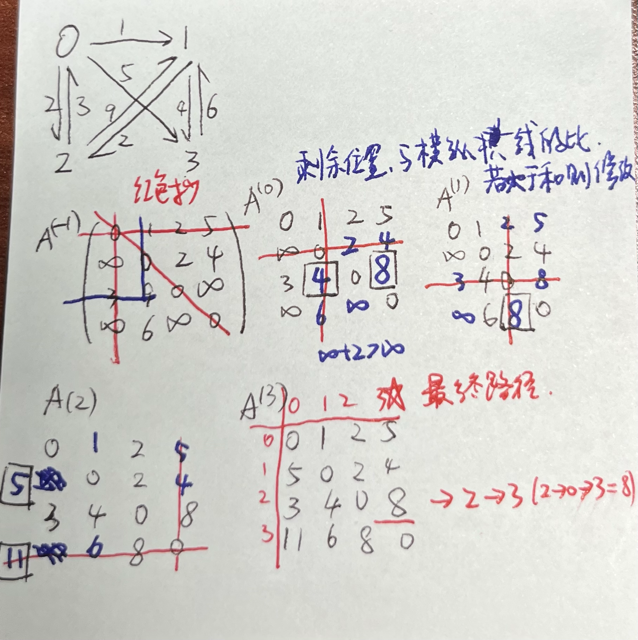 0 1 1
5
2 3 9 4 6
2
2 3
剩余位置,与横纵横线的比.
若大于和则修改
红色抄
A(-1)
0 1 2 5
∞ 0 2 4
3 9 0 ∞
∞ 6 ∞ 0
A(0)
0 1 2 5
∞ 0 2 4
3 4 0 8
∞ 6 ∞ 0
∞+2>∞
A(1)
0 1 2 5
∞ 0 2 4
3 4 0 8
∞ 6 8 0
A(2)
0 1 2 5
5 0 2 4
3 4 0 8
11 6 8 0
A(3) 最终路径.
0 1 2 3
0 0 1 2 5
1 5 0 2 4
2 3 4 0 8 → 2→3 (2→0→3=8)
3 11 6 8 0